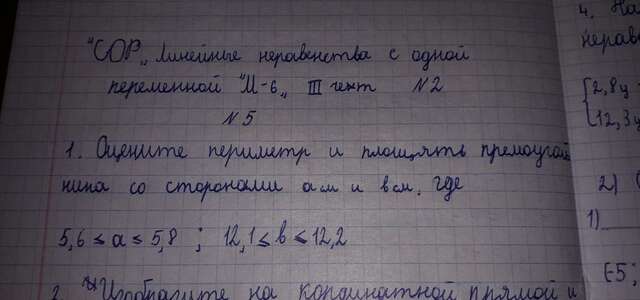 "СОР„ Линейные неравенства с одной
переменной "М-6„ III чент N2
N5
1. Оцените периметр и площять прямоуголь
ника со сторонами а см и в см, где
5,6 ≤ а ≤ 5,8 ; 12,1 ≤ в ≤ 12,2
Изобразите на координатной прямой и
4. На
нерав
{2,8у
12,3у
2)
1)
(-5;